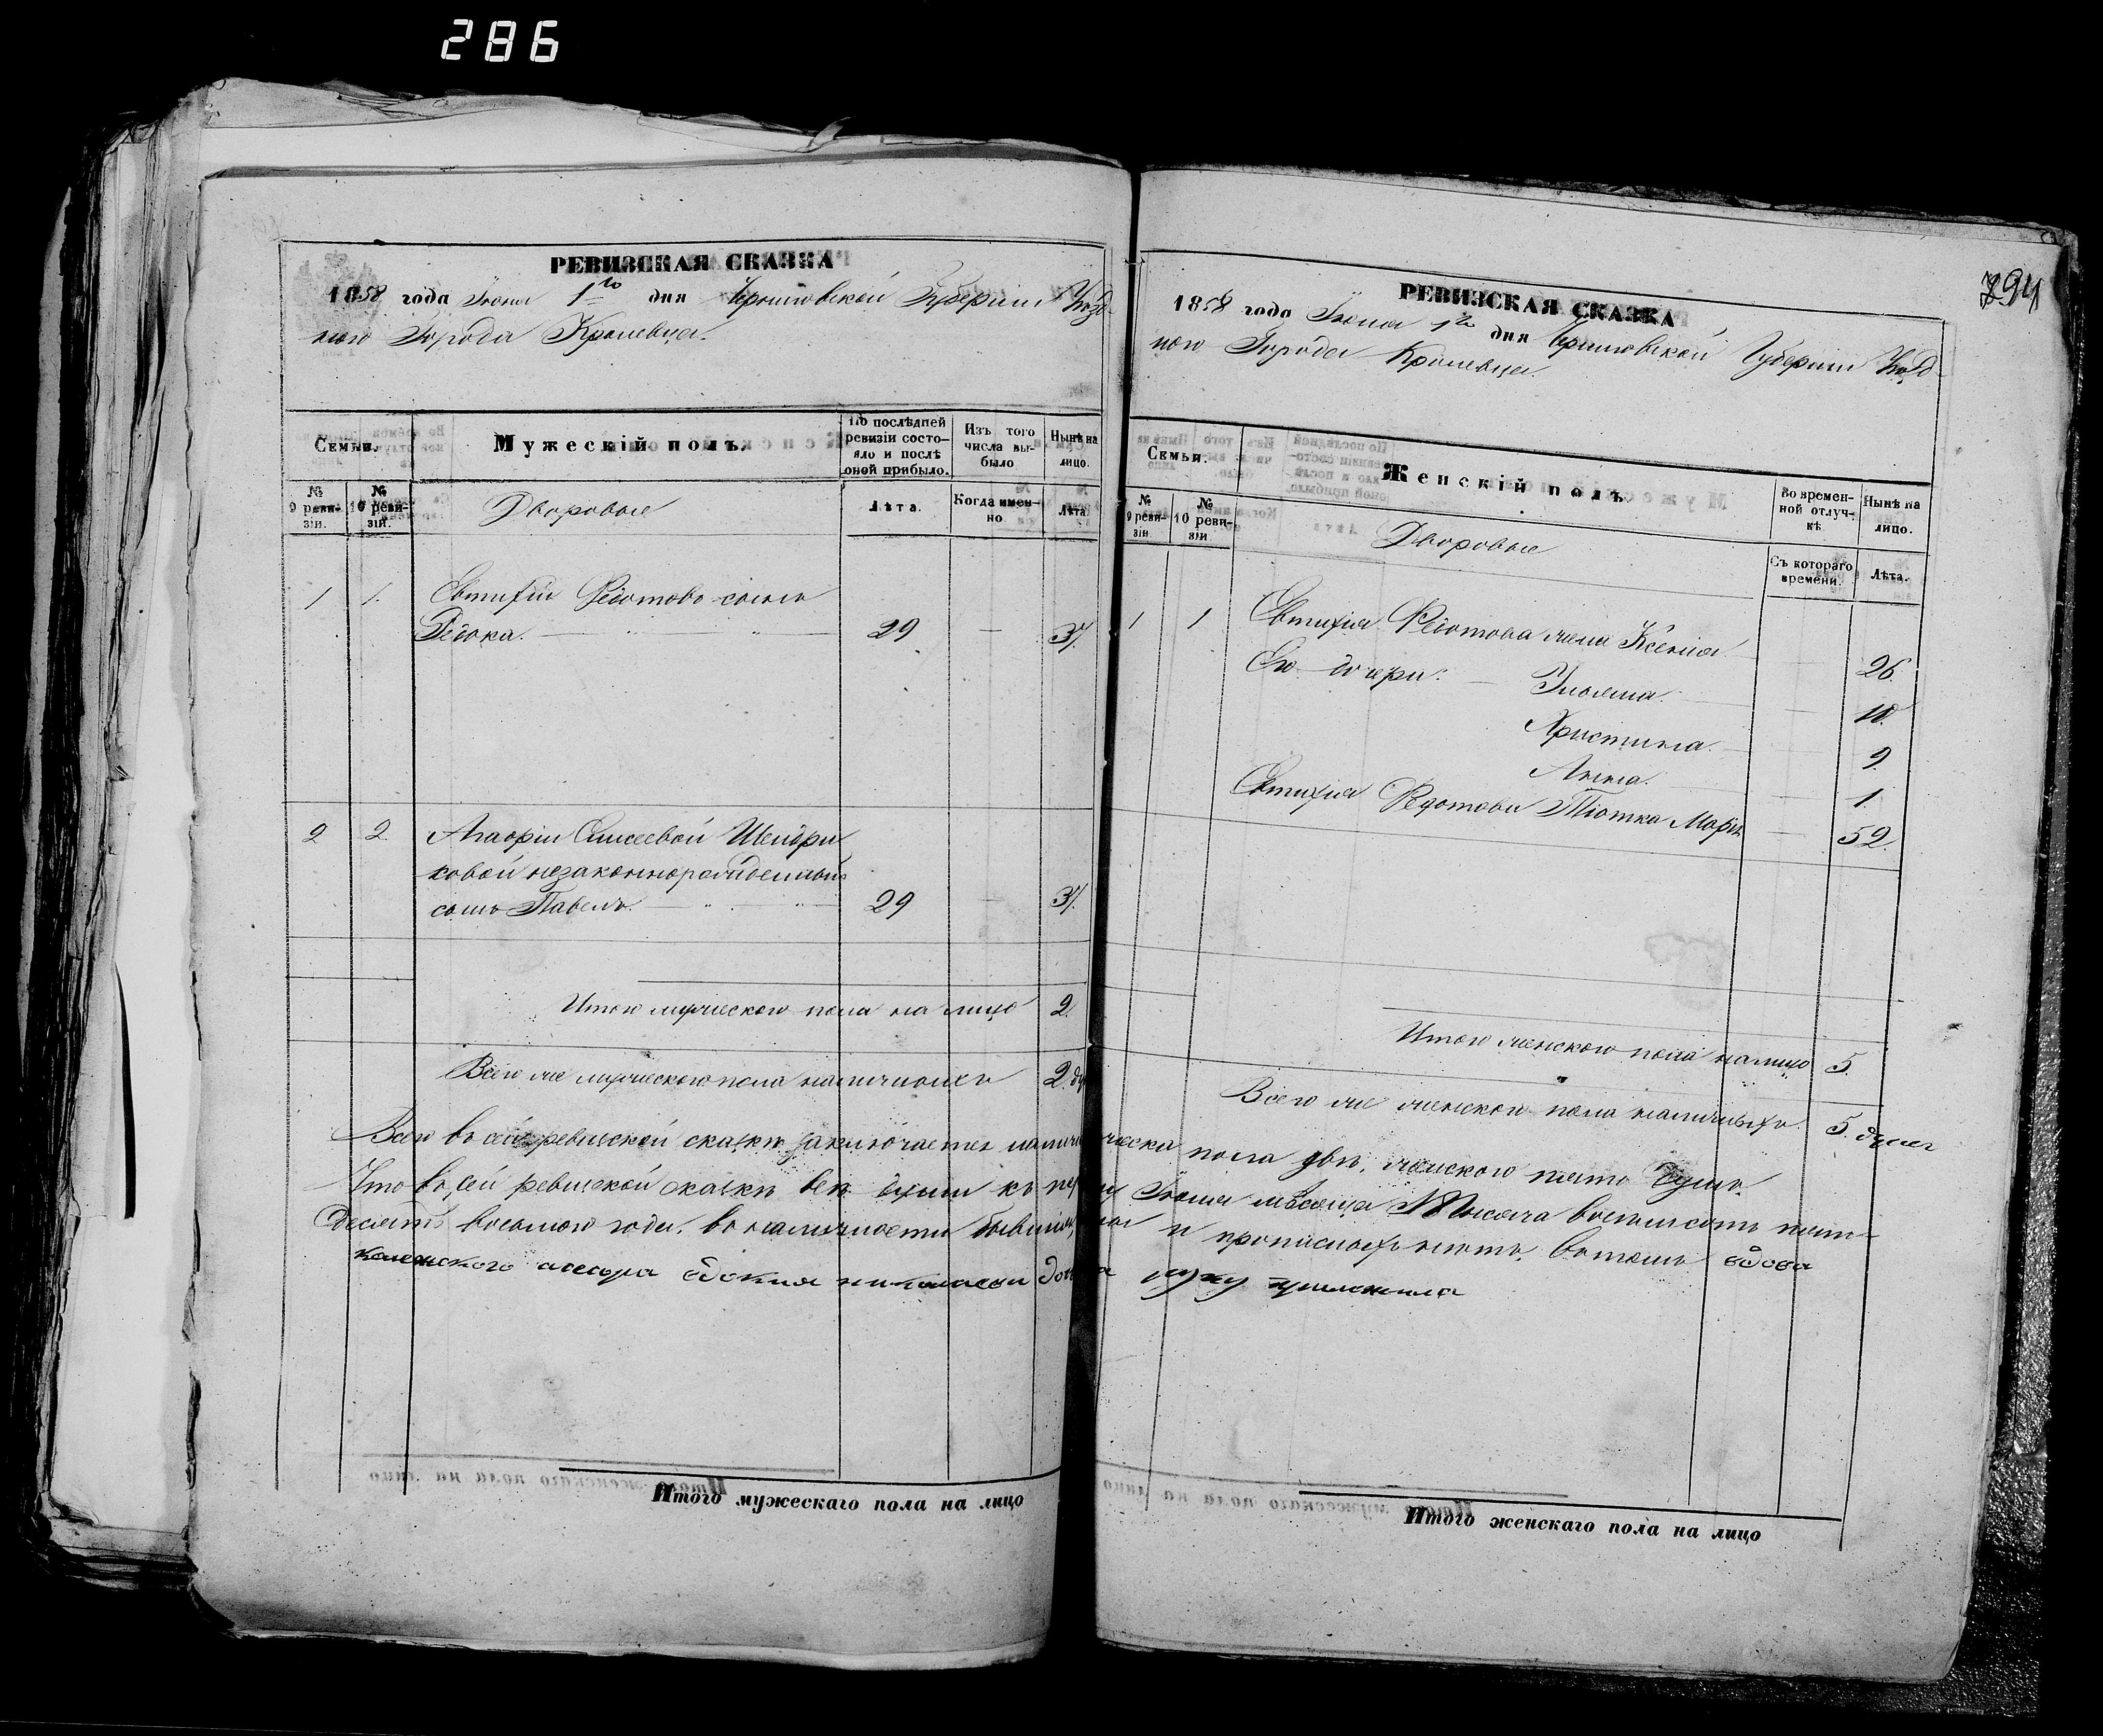 286
794
РЕВИЗСКАЯ СКАЗКА
1858 года Июня 1го дня Черниговской Губерніи Уѣзд-
ного Города Кролевца.
Семьи.
Мужескій полъ.
По послѣдней ревизіи состояло и послѣ оной прибыло.
Изъ того числа выбыло
Нынѣ на лицо.
№ 9 ревизіи.
№ 10 ревизіи.
Дворовые
Лѣта.
Когда именно
Лѣта
1 1. Евтихій Федотовъ сынъ
Редька. 29 — 37.
2 2. Агафіи Елисеевой
ковой незаконнорожденный
сынъ Павелъ. 29 — 37.
Итого мужеского пола на лицо 2.
Всего же мужеского пола наличныхъ 2. ду
РЕВИЗСКАЯ СКАЗКА
1858 года Июня 1го дня Черниговской Губерніи Уѣзд-
ного Города Кролевца.
Семьи.
Женскій полъ.
Во временной отлучкѣ
Нынѣ на лицо.
№ 9 ревизіи
№ 10 ревизіи
Дворовые
Съ котораго времени.
Лѣта.
1 1 Евтихія Федотова жена Ксенія 26.
Его дочери: Ульяна. 10.
Христина. 9.
Анна. 1.
Евтихія Федотова Тіотка Марія 52.
Итого женского пола налицо 5.
Всего же женского пола наличныхъ. 5. душъ
Всего въ сей ревизской сказкѣ заключается мужеска пола двѣ, женского пять душъ.
Что въ сей ревизской сказкѣ всѣ души къ Іюня мѣсяца Тысяча восемьсотъ пять-
десятъ восьмого года, въ наличности бывшія, и прописныхъ нѣтъ, въ томъ вдова
асесора вдокия николаева руку приложила
Итого мужескаго пола на лицо
Итого женскаго пола на лицо